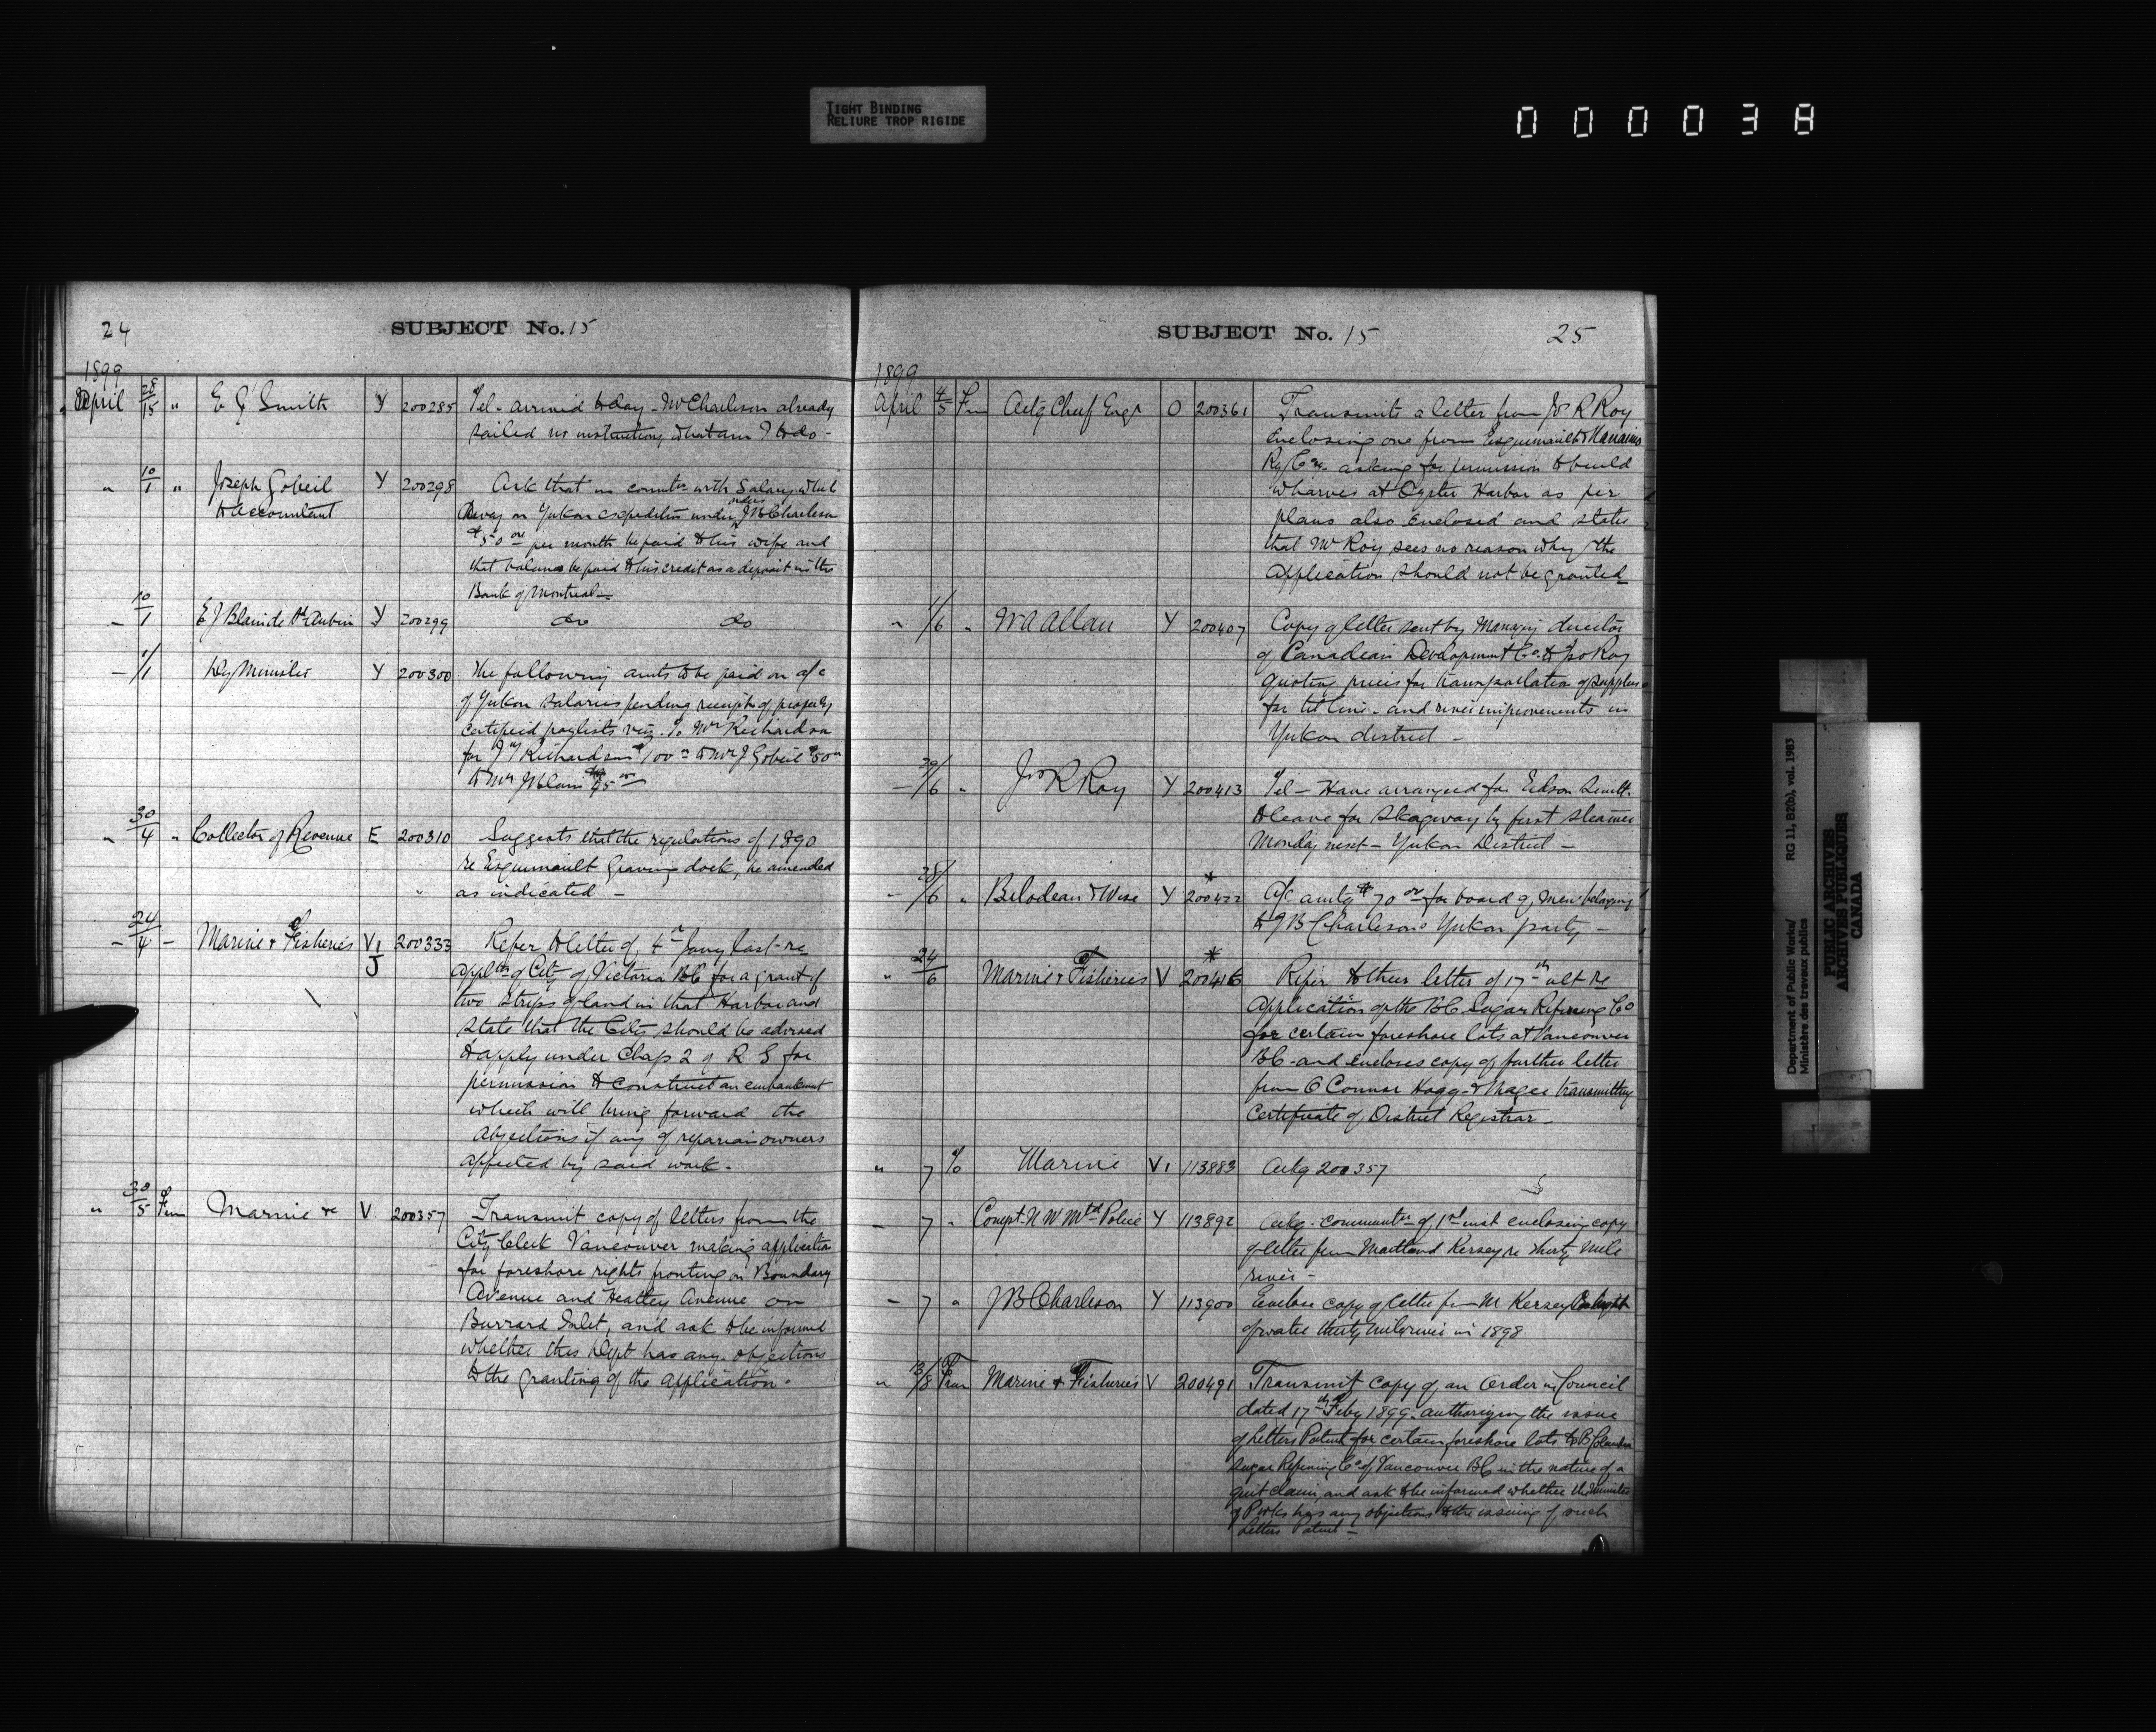 TIGHT BINDING
RELIURE TROP RIGIDE
000038
24
SUBJECT No. 15
1899
April 28/15 " E J Smith Y 200285 Tel - arrived today - Mr Charleson already
sailed no instructions what am I to do -
" 10/1 " Joseph Gobeil Y 200298 Ask that in connectn with Salary whil
to accountant away on Yukon expedition under J B Charleson
$50 00 per month be paid to his wife and
that balance be paid to his credit as a deposit in the
Bank of Montreal -
- 10/1 E J Blain de St Aubin Y 200299 do do
- 1/1 Dy Minister Y 200300 The following amts to be paid on a/c
of Yukon salaries pending receipt of properly
certified paylists viz. To Mrs Richardson
for J Richardson $100 00 to Mrs J Gobeil $50 00
to Mrs J Blain 00
" 30/4 " Collector of Revenue E 200310 Suggests that the regulations of 1890
re Esquimault Graving dock, be amended
as indicated -
- 24/4 - Marine & Fisheries V1 200333 Refer to letter of 4th Jany last - re
J Appltn of City of Victoria BC for a grant of
two strips of land in that Harbor and
state that the City should be advised
to apply under Chap 2 of R S for
permission to construct an embankment
which will bring forward the
objections if any of reparian owners
affected by said work.
" 30/5 Frm Marine &c V 200357 Transmit copy of letters from the
City Clerk Vancouver making application
for foreshore rights fronting on Boundary
Avenue and Heatley Avenue on
Burrard Inlet, and ask to be informed
whether this Dept has any objections
to the granting of the application.
SUBJECT No. 15
25
1899
April 4/5 Frm Actg Chief Engr O 200361 Transmits a letter from Jno R Roy
enclosing one from Esquimault & Nanaimo
Ry Co. asking for permission to build
wharves at Oyster Harbor as per
plans also enclosed and state
that Mr Roy sees no reason why the
application should not be granted
" 1/6 " W A Allan Y 200407 Copy of letter sent by Managing director
of Canadian Development Co. to Jno Roy
quoting prices for transportation of supplies
for tel line - and river improvements in
Yukon district -
- 29/6 " Jno R Roy Y 200413 Tel - Have arranged for Edson
to leave for Skagway by first steamer
Monday next - Yukon District -
- 28/6 " Belodeau & Wise Y 200422 A/c amtg $70 00 for board of men belonging
to J B Charlesons Yukon party -
" 24/6 Marine & Fisheries V 200416 Refer to their letter of 17th ult re
Application of the BC Sugar Refining Co
for certain foreshore lots at Vancouver
BC - and encloses copy of further letter
from O Connor Hogg & Magee transmitting
Certificate of District Registrar -
" 7 To Marine V1 113883 Ackg 200357
- 7 " Compt. N W Mtd Police Y 113892 Ackg - communtn of 1st inst enclosing copy
of letter from Maitland Kersey re thirty mile
river -
- 7 " J B Charleson Y 113900 Enclose copy of letter from M Kersey
of water thirty mile river in 1898
" 13/8 From Marine & Fisheries V 200491 Transmit copy of an Order in Council
dated 17th Feby 1899 - authorizing the issue
of Letters Patent for certain foreshore lots to B Columbia
Sugar Refining Co of Vancouver BC in the nature of a
quit claim and ask to be informed whether the Minister
of P Wks has any objections to the issuing of such
Letters Patent -
Department of Public Works/
Ministère des travaux publics
RG 11, B2(b), vol. 1983
PUBLIC ARCHIVES
ARCHIVES PUBLIQUES
CANADA